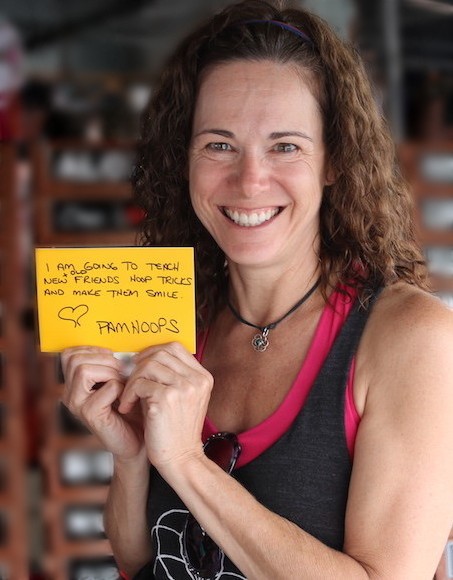 I AM GOING TO TEACH
+ OLD
NEW FRIENDS HOOP TRICKS
AND MAKE THEM SMILE.
♡ PAMHOOPS